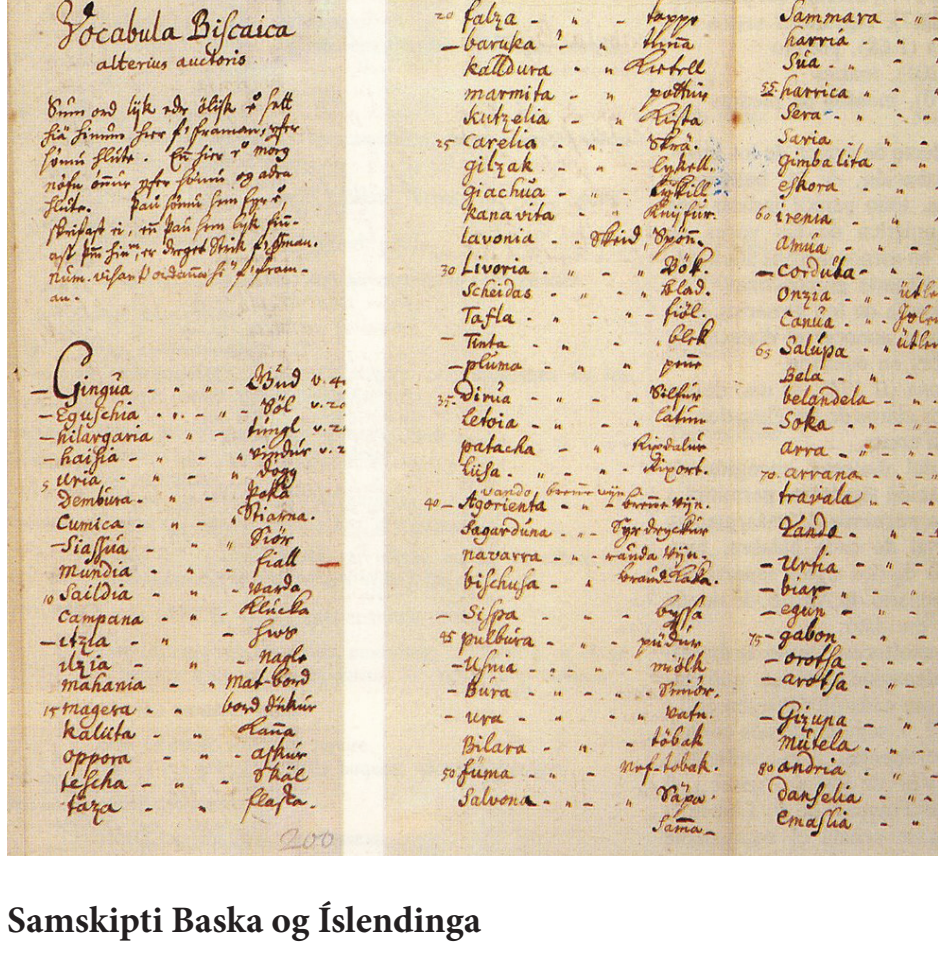 Vocabula Biscaica
alterius auctoris.
Sum ord lijk edr ölijk
hia hinum hier framan, yfer
sömu hlute. En hier mörg
nöfn önnur yfer sömu og adra
hlute. Þau sömu sem
skrifast ei, en þau sem lijk finn-
ast er dreget Strik
fram-
an.
– Gingua - „ „ - Gud v.
– Eguschia - „ - „ - Söl v.
– hilargaria - „ - tungl v.
– haisia - „ - „ vindur v.
5 Uria - „ - „ dogg
Dembura - „ - Þoka
Cumica - „ - Stiarna.
– Siassua - „ Siör
Mundia - „ - fiall
10 Saildia - „ - varda
Campana - „ - Klucka
– itzia - „ - hws
ilzia - „ - nagle
mahania - „ mat-bord
15 magera - „ bord dükur
kaliita - „ - kanna
oppora - „ - askur
tescha - „ - Skäl
taza - „ - flaska.
200
20 falza - „ - tappe
– baruka - „ - tunna
kalldura - „ Kietell
marmita - „ - pottur
Kutzelia - „ - Kista
25 Carelia - „ - Skrä.
gilzak - „ - lykell.
giachua - „ - lykill
kanavita - „ - Knijfur.
lavonia - „ Skeid Spönn.
30 Livoria - „ - „ - Bök.
Scheidas - „ - blad.
Tafla - „ - fiöl.
– Tinta - „ - blek
– pluma - „ - penne
35 – Dirua - „ - Silfur
Letoia - „ - latun
patacha - „ - Rixdalur
Liisa - „ - „ - Riport.
vando, brenne vijn
40 – Agorienta - „ - brenne vijn.
Sagarduna - „ - Syrdryckur
navarra - „ - rauda vijn.
bischusa - „ - braud-kaka.
– Sispa - „ - byssa
45 pulbura - „ - püdur
– Usnia - „ - miölk
– Bura - „ - Smiör.
– ura - „ - vatn.
Bilara - „ - töbak
50 fuma - „ - Nef-tobak.
Salvona - „ - Säpa.
Samma-
Sammara - „
harria - „
Sua - „
55 harrica - „
Sera - „
Saria - „
gimbalita - „
eskora - „
60 irenia - „
Amua - „
– Corduta - „
Onzia - „
Canua - „
65 Salupa - „
Bela - „
belandela - „
– Soka - „
arra - „
70. arrana - „
travala - „
Vando - „
– Urtia - „
– biar - „
– egun - „
75 – gabon - „
– orotsa - „
– arotsa - „
– Gizuna - „
Mutela - „
80 andria - „
Danselia - „
Emaslia - „
Samskipti Baska og Íslendinga